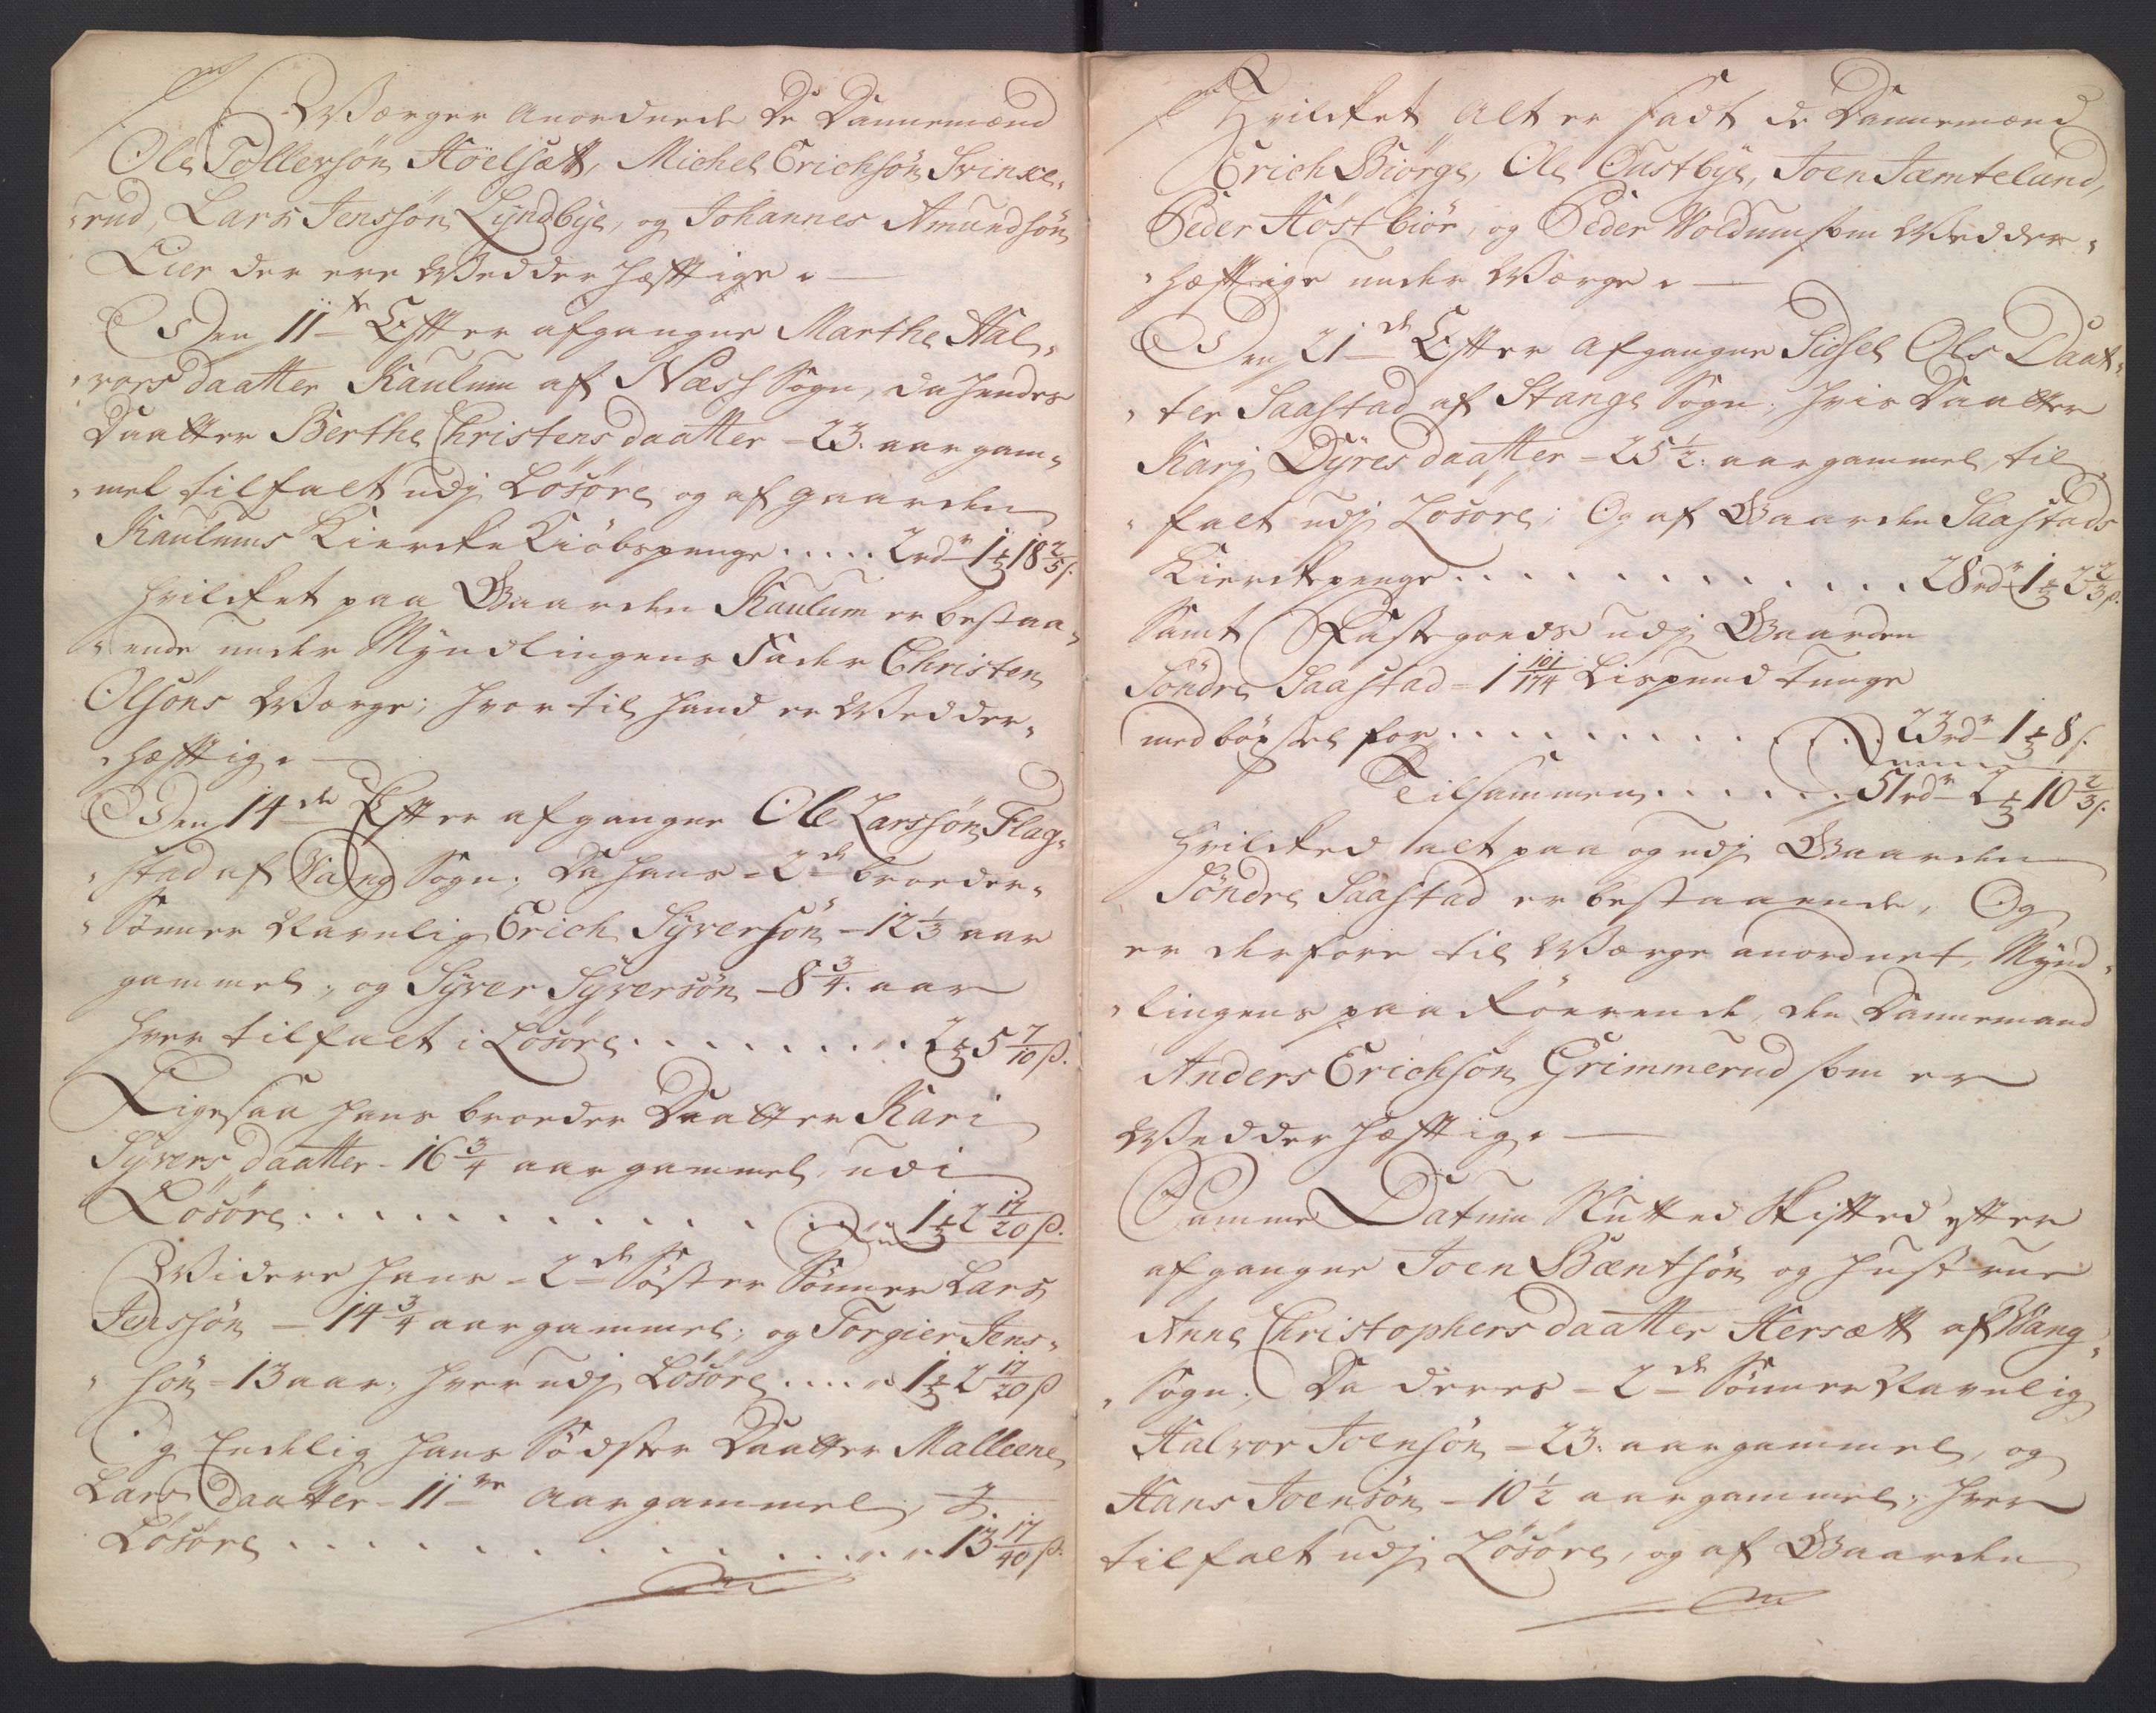 Værger Anordnede De Dannemænd
Ole Tollersøn Høelsætt, Michel Erichsøn Svinxe,
,rud, Lars Jenssøn Lÿndbÿe, og Johannes Amundsøn
Lier der ere Vedderhæfftige. —
Den 11te Effter afgangne Marthe Hal,
,vors daatter Kaulum af Næss Sogn, da hendes
Daatter Berthe Christens daatter - 23. aar gam,
,mel tilfalt udj Løsøre og af gaarden
Kaulums Kiercke Kiøbspenge ..... 2rdr 1 ₰ 18 2/5 s.
hvilcket paa Gaarden Kaulum er bestaa,
,ende under Mÿndlingens Fader Christen
Olsøns Værge; hvortil hand er Vedder,
,hæfftig. —
Den 14de Effter afgangne Ole Larssøn Flag,
,stad af Wang Sogn; Da hans - 2de broeder,
,Sønner Navnlig Erich Sÿversøn - 12 1/3 aar
gammel, og Sÿver Sÿversøn - 8 3/4. aar
hver tilfalt i Løsøre ......... 2 ₰ 5 7/10 β.
Ligesaa hans broeder Daatter Kari
Sÿvers daatter - 16 3/4 aar gammel, udi
Løsøre ............ 1 ₰ 2 17/20 β.
Videre hans - 2de Søster Sønner Lars
Jenssøn — 14 3/4 aar gammel; og Torgier Jens,
,søn - 13 aar, hver udj Løsøre .... 1 ₰ 2 17/20 β
Og Endelig hans Sødster Daatter Malleene
Lars daatter - 11ve Aar gammel, J.
Løsøre .............. 13 17/40 β.
Hvilcket Alt er Sadt de Dannemænd
Erich Biørge, Ole Oustbÿe, Joen Jæmtelund,
Peder Høstbiør, og Peder Woldum som Vedder,
,hæfftige under Værge. —
Den 21de Effter Afgangne Sidsel Ols Daat,
,ter Saastad af Stange Sogn; hvis Daatter
Karj Dÿres daatter - 25 1/2. aar gammel, til
,falt udj Løsøre; Og af Gaarden Saastads
Kierckepenge .............. 28rdr 1 ₰ 2 2/3 β.
Samt Faste goeds udj Gaarden
Søndre Saastad - 1 101/174 Lispund tunge
med bøxel for ............ 23rdr 1 ₰ 8 s.
Tilsammen ...... 51rdr 2 ₰ 10 2/3 s.
Hvilcked alt paa og udj Gaarden
Søndre Saastad er bestaaende, Og
er derfore til Værge anordnet, Mÿnd,
,lingens paa Rørende, den Dannemand
Anders Erichsøn Grimmerud som er
Vedderhæfftig. —
Samme Datum Slutted Skifted effter
afgangne Joen Bæntsøn og hustrue
Anne Christophers daatter Hersætt af Wang
,Sogn; Da deres - 2de Sønner Navnlig
Halvor Joensøn - 23. aar gammel, og
Hans Joensøn - 10 1/2 aar gammel; hver
tilfalt udj Løsøre, og af Gaarden